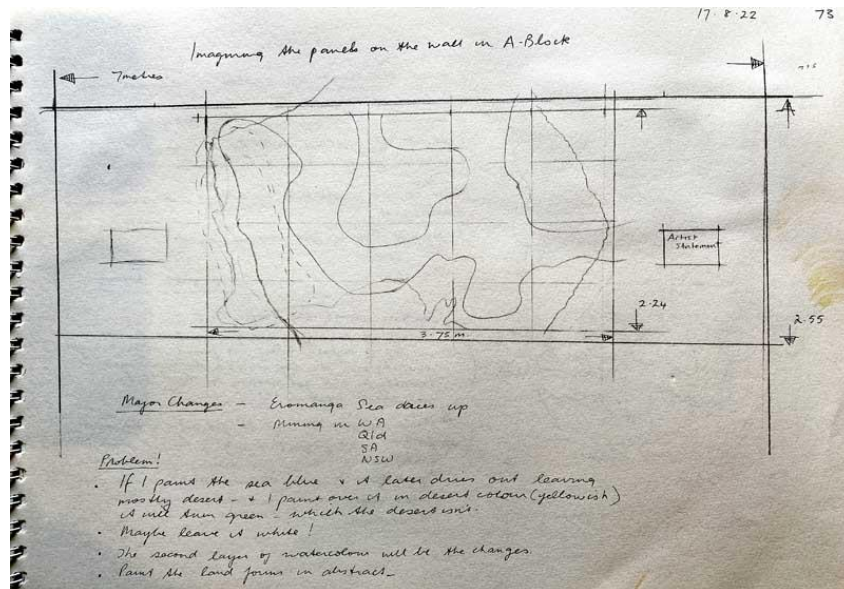 17.8.22 73
Imagining the panels on the wall in A-Block
7metres
Artist
Statement
2.24
2.55
3.75 m.
Major Changes - Eromanga Sea dries up
- Mining in WA
Qld
SA
NSW
Problem!
• If I paint the sea blue & it later dries out leaving
mostly desert - & I paint over it in desert colour (yellowish)
it will turn green - which the desert isn't.
• Maybe leave it white!
• The second layer of watercolour will be the changes.
• Paint the land forms in abstract -